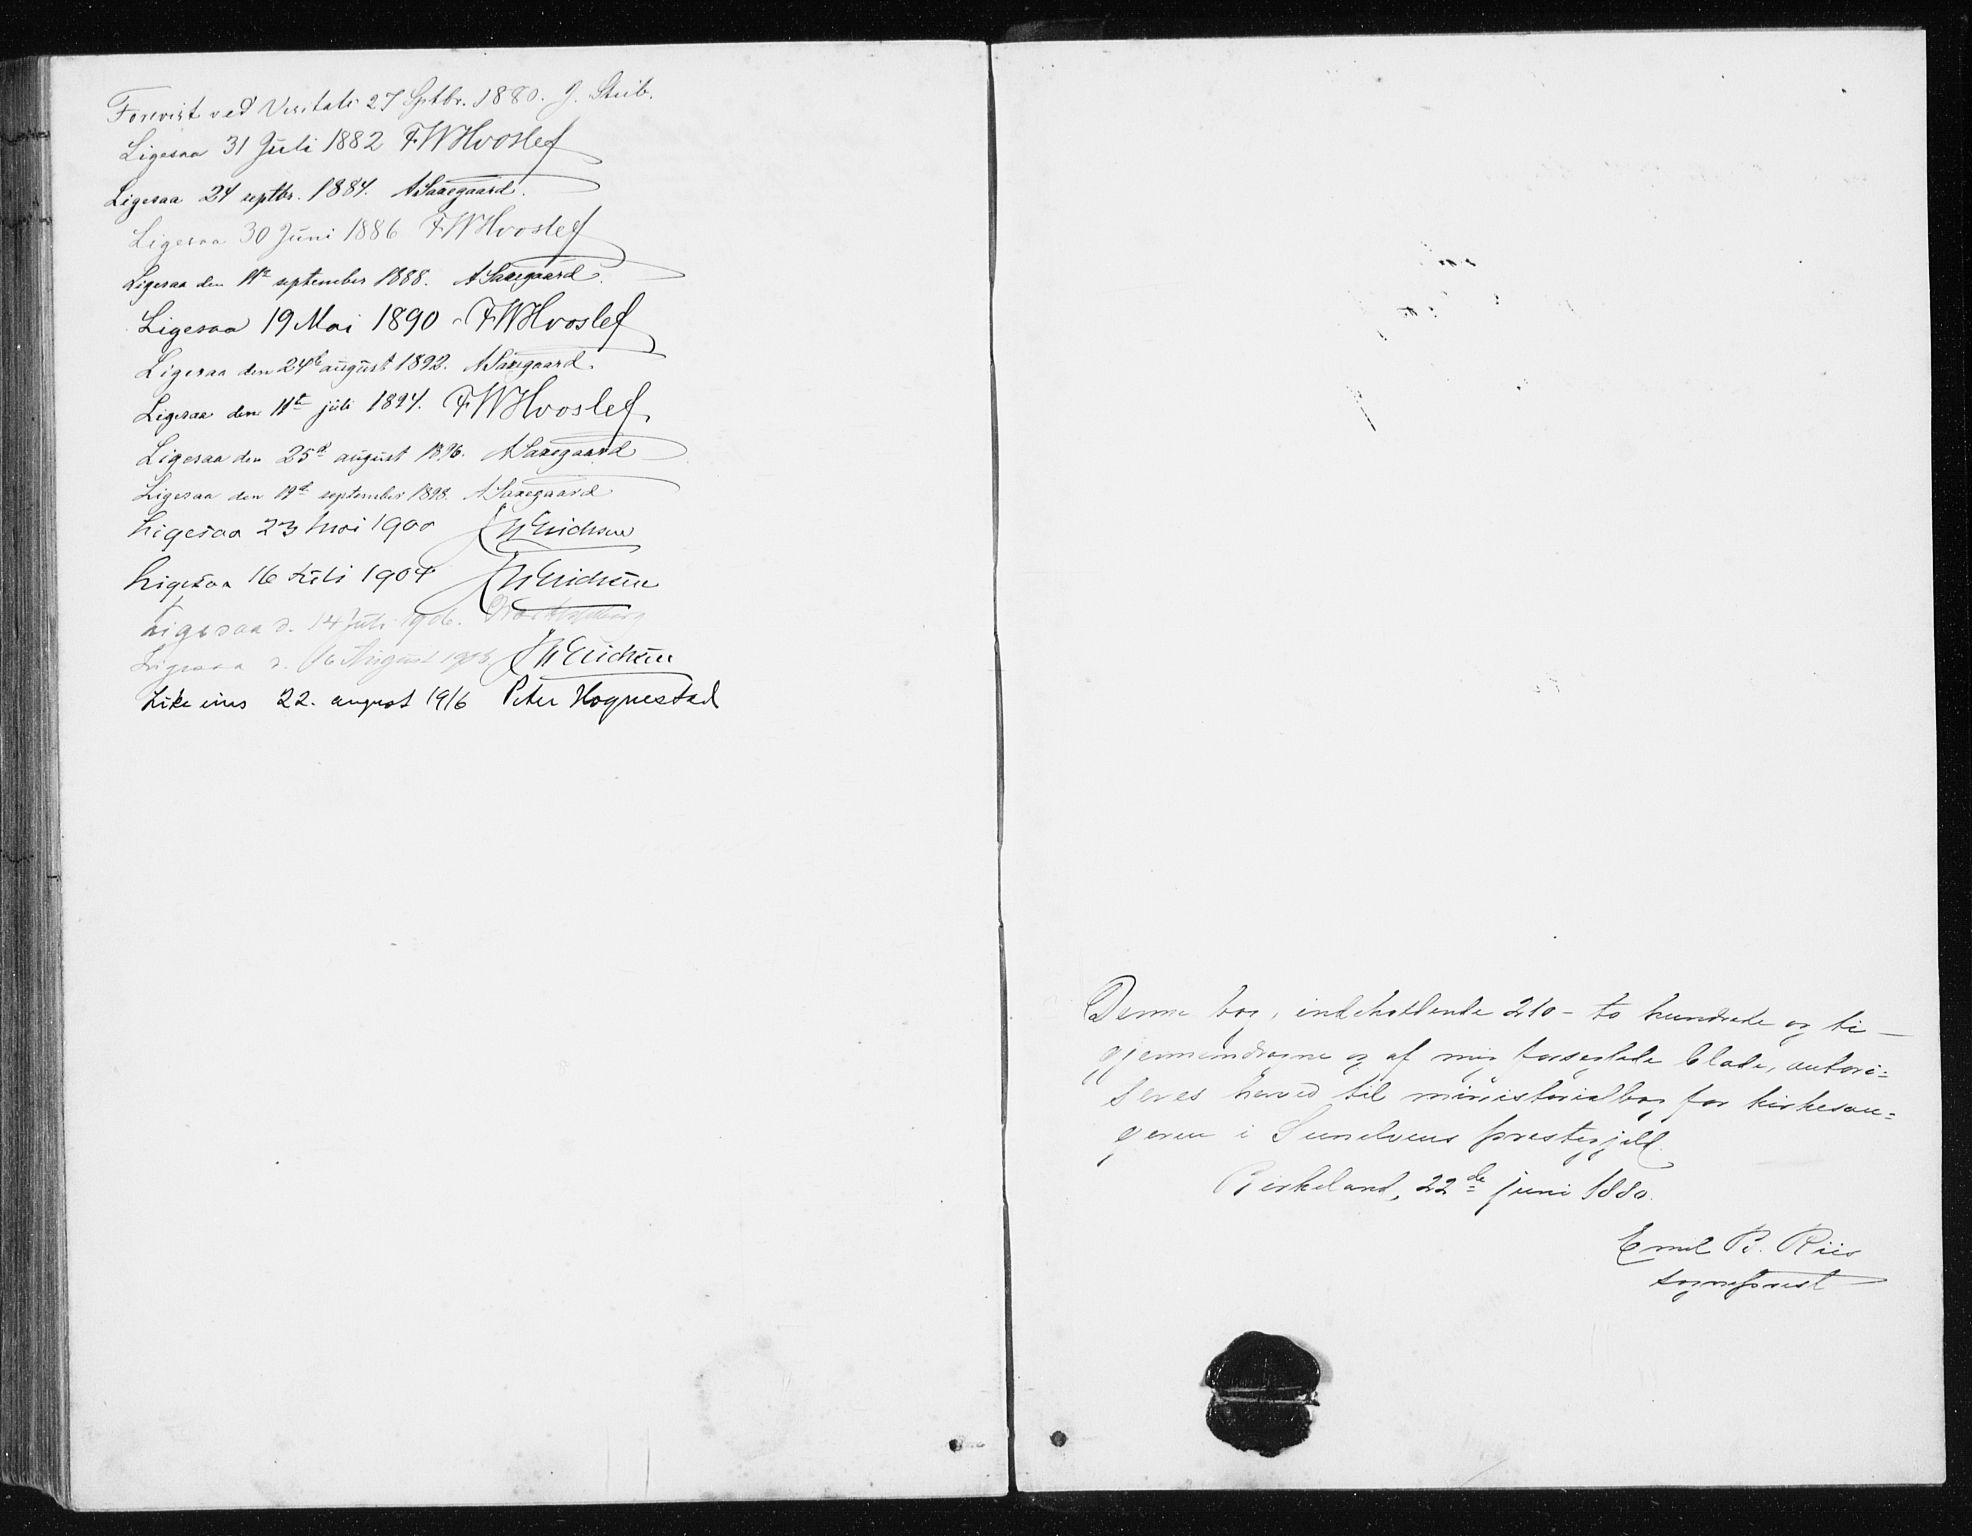 Forevist ved Visitats 27 Sptbr. 1880. J. Steib.
Ligesaa 31 Juli 1882 FWHvoslef
Ligesaa 24 septbr. 1884. ASaxegaard.
Ligesaa 30 Juni 1886 FWHvoslef
Ligesaa den 11te september 1888. ASaxegaard.
Ligesaa 19 Mai 1890 - FWHvoslef
Ligesaa den 24de august 1892. ASaxegaard.
Ligesaa den 11te juli 1894. FWHvoslef.
Ligesaa den 25de august 1896. ASaxegaard
Ligesaa den september 1898. ASaxegaard
Ligesaa 23 Mai 1900 Erichsen
Ligesaa 16 Juli 1904 Erichsen
Ligesaa d. 14 Juli 1906.
Ligesaa d. 16 August Erichsen
Like eins 22. august 1916 Peter Hognestad
Denne bog, indeholdende 210 - to hundrede og ti -
gjennemdragne og af mig forseglede blade, autori=
seres herved til ministerialbog for kirkesan=
geren i Sunelvens prestegjeld.
Birkeland, 22de juni 1880.
Emil B. Riis
sogneprest